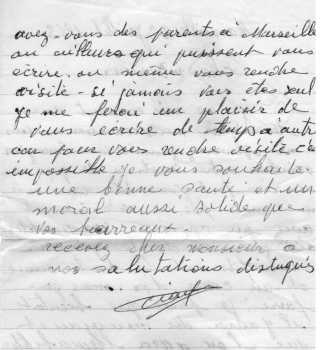 avez-vous des parents à Marseille
ou ailleurs qui puissent vous
écrire. ou même vous rendre
visite - si jamais vous êtes seul
je me ferai un plaisir de
vous écrire de temps à autr
car pour vous rendre visite c'e
impossible je vous souhaite
une bonne santé et un
moral aussi solide que
vos barreaux.
recevez cher monsieur
nos salutations distingués